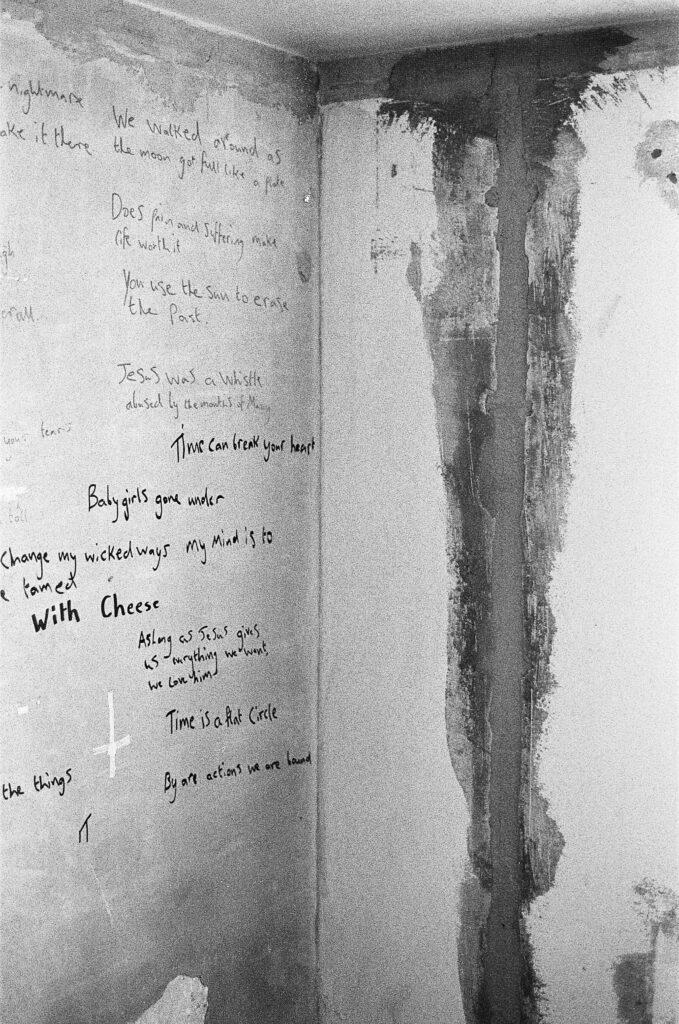 nightmare
ake it there
We walked around as
the moon got full like a plate
Does pain and suffering make
life worth it
gh
You use the sun to erase
the Past.
erall
Jesus was a whistle
abused by the mouths of Many
your tears
Time can break your heart
Babygirls gone under
Change my wicked ways my Mind is to
e tamed
With Cheese
As long as Jesus gives
us everything we want
we Love him
Time is a flat Circle
the things
By are actions we are bound